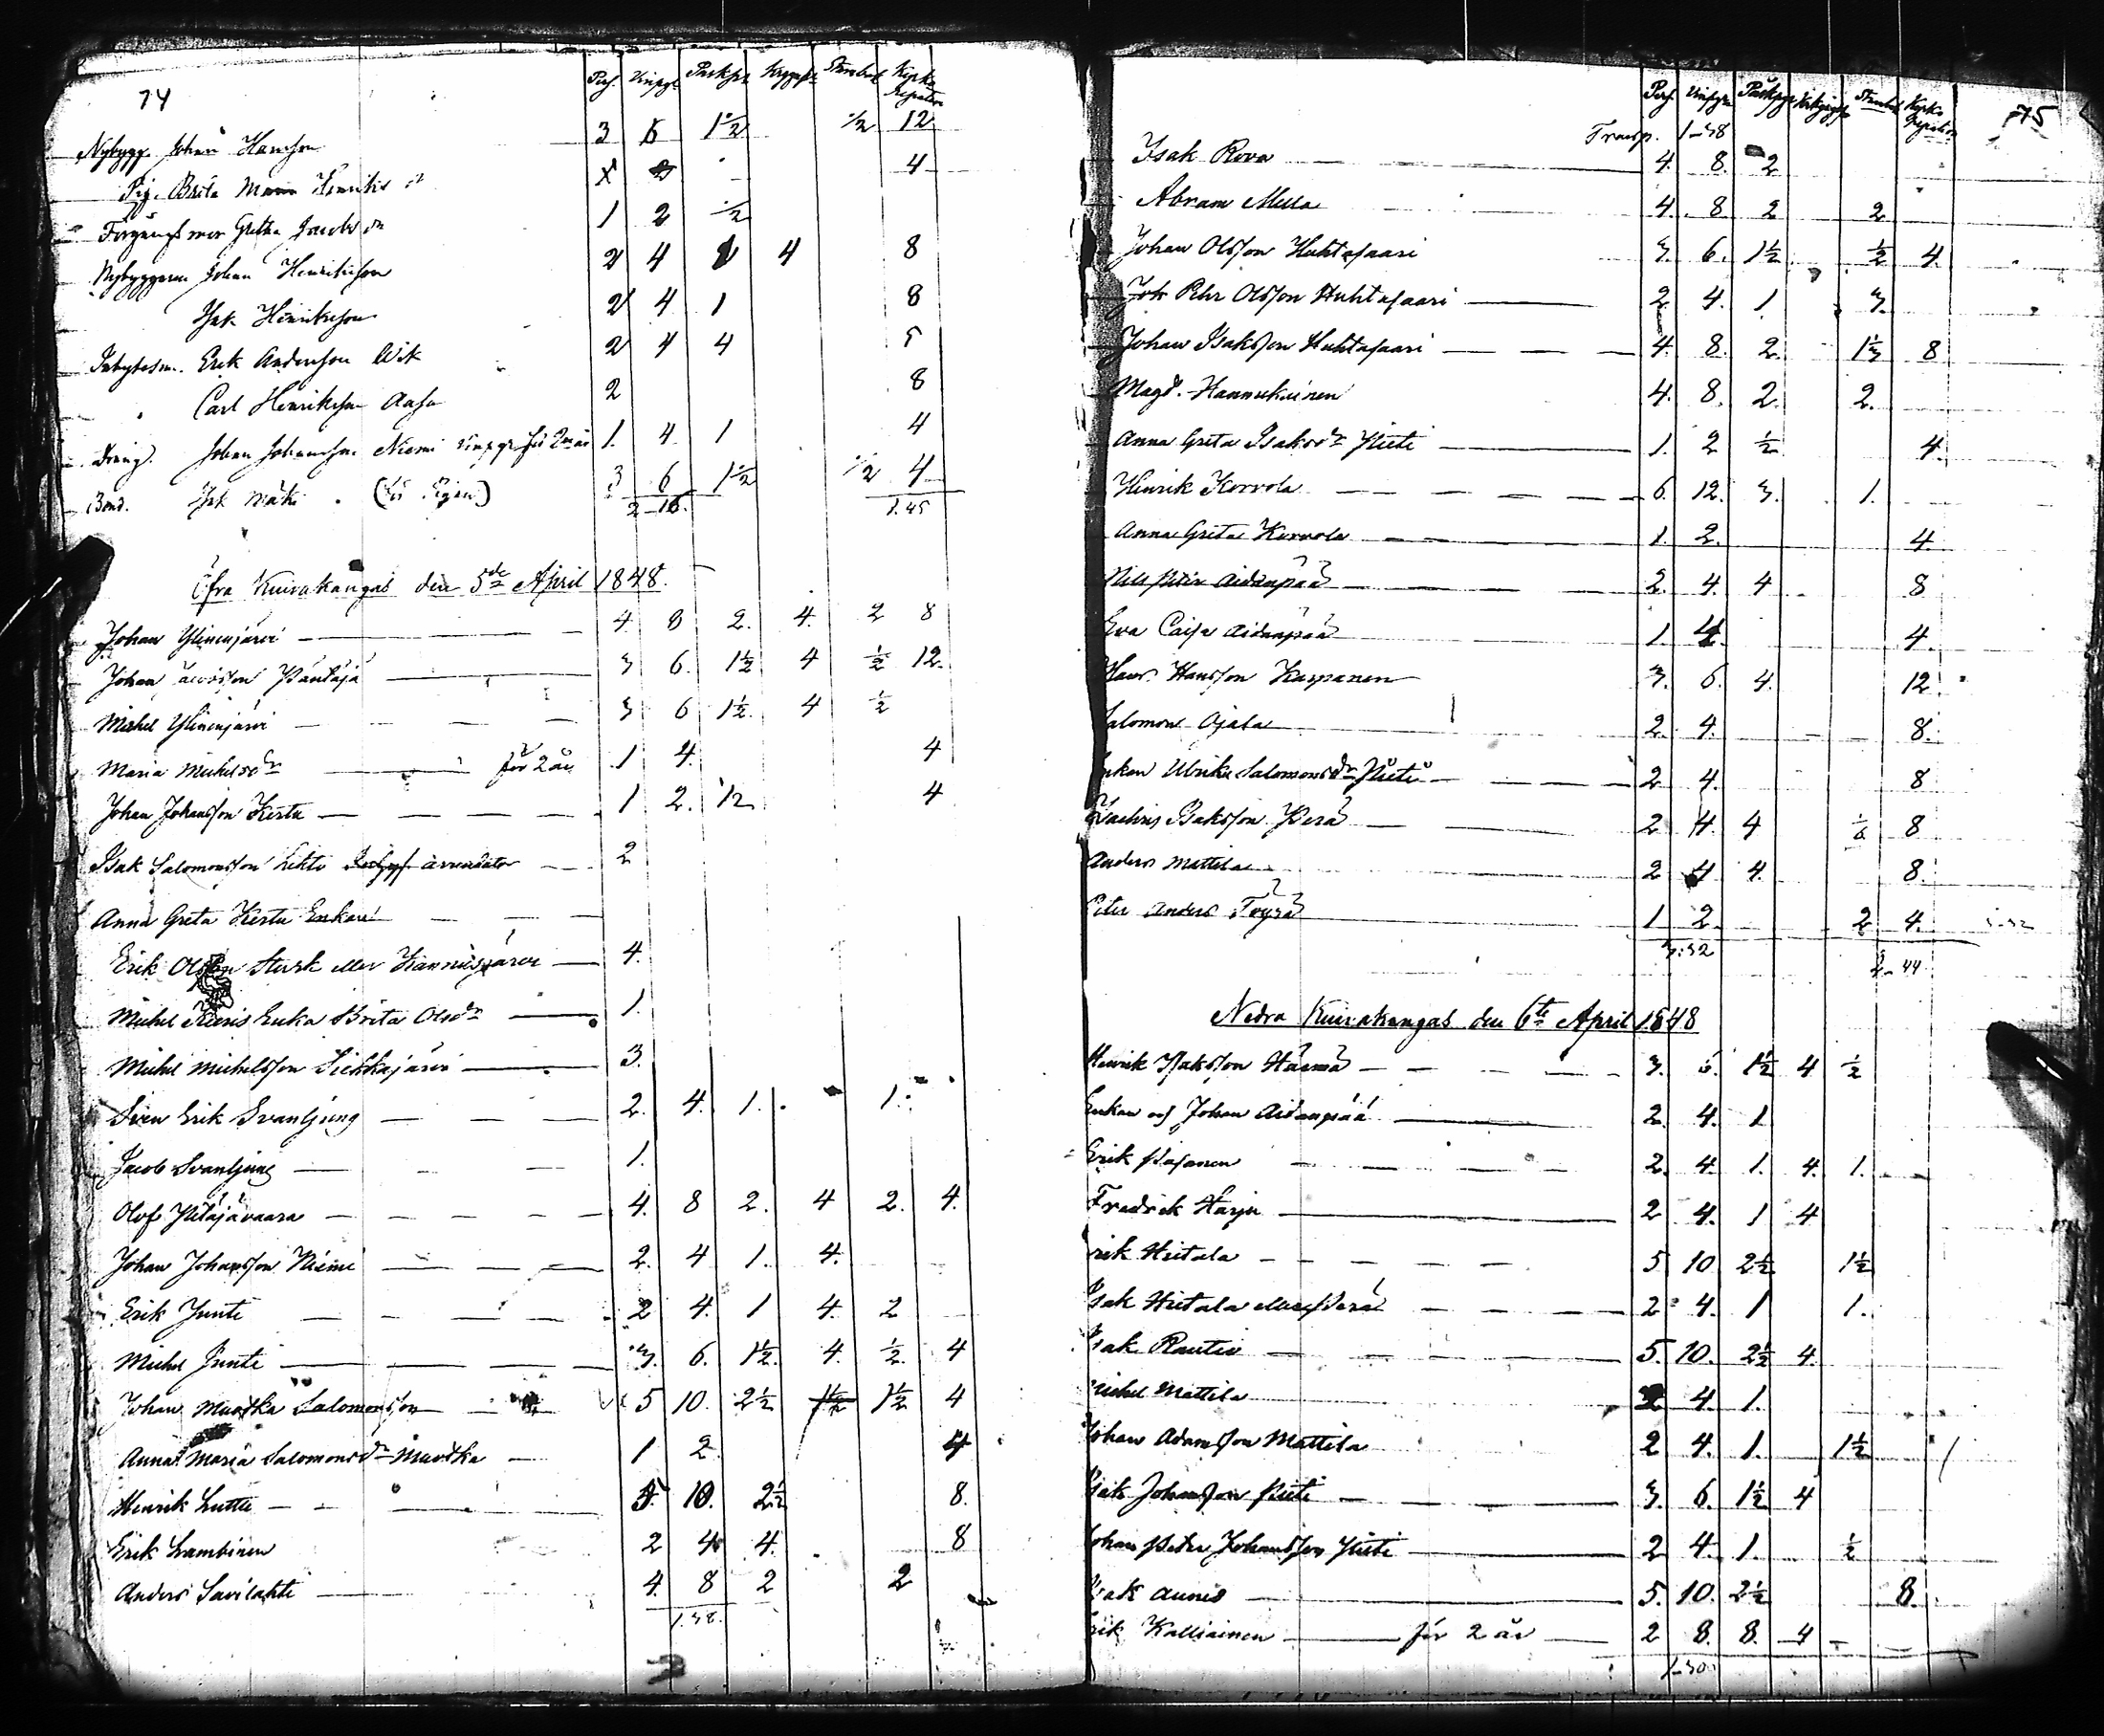 74
Pers. Vinpgr Påskpr Stambok Kyrko
Nybygg. Johan Hansson 3 6 1½ ½ 12
Pig. Brita Henriks dr 4
Greta Jacobs dr 1 2 ½
Nybyggaren Johan Henriksson 2 4 4 8
Isak Henriksson 2 4 1 8
Inhyses m. Erik Andersson Wik 2 4 4
Carl Henriksson 2 8
Dräng. Johan Johansson Niemi vinpgr för 2 år 1. 4 1 4
Bond. Isak Mäki 3 6 1½ ½ 4
2-16. 1.45
Öfra Kuivakangas den 5de April 1848.
Johan Ylinenjärvi 4. 8 2. 4. 2 8
Johan Päntäjä 3 6. 1½ 4 ½ 12.
Michel Ylinenjärvi 3 6 1½ 4 ½
Maria Michelsdr för 2 år 1 4. 4
Johan Johansson Kerttu 1 2. ½ 4
Isak Salomonsson Lehto arrendator 2
Anna Greta Kerttu Enkan
Erik Olsson Stark eller Kannusjärvi 4.
Michel Enka Brita Olsdr 1.
Michel Michelsson Liekkajärvi 3.
Sven Erik Svanljung 2. 4. 1. 1.
Jacob Svanljung 1.
Olof Pitäjävaara 4. 8 2. 4 2. 4.
Johan Johansson Niemi 2. 4 1. 4.
Erik Junti 2 4. 1 4. 2
Michel Junti 3. 6. 1½ 4. ½ 4
Johan Muotka Salomonsson 5 10. 2½ 1½ 1½ 4
Anna Maria Salomonsdr Muotka 1 2 4
Henrik Luttu 5. 10. 2½ 8.
Erik Lambinen 2 4 4. 8
Anders Savilahti 4. 8 2 2
1.38.
75
Pers. Vinpgr Påskpgr Stambok Kyrko
Transp. 1-38
Isak Rova 4. 8. 2
Abram Mella 4. 8 2 2
Johan Olsson Huhtasaari 3. 6. 1½ ½ 4.
Pehr Olsson Huhtasaari 2 4. 1. 3.
Johan Isaksson Huhtasaari 4. 8. 2. 8
Magd. Hannukainen 4. 8. 2. 2.
Anna Greta Isaksdr Pieti 1. 2 ½ 4.
Henrik Korvola 6. 12. 3. 1.
Anna Greta Korvola 1. 2. 4.
Nils Peter Aidanpää 2. 4. 4 8
Eva Caisa Aidanpää 1. 4. 4.
Hans Hansson Karpanen 3. 6. 4. 12.
Salomon Ojala 2. 4. 8.
Enkan Ulrika Salomonsdr Pieti 2 4. 8
Zachris Isaksson Perä 2 4. 4 8
Anders Mattila 2 4 4. 8.
Peter Anders Töyrä 1 2. 2 4.
3:32
2-44
Nedra Kuivakangas den 6te April 1848
Henrik Isaksson Harmä 3. 6. 1½ 4 ½
Enkan och Johan Aidanpää 2. 4. 1
Erik Pasanen 2. 4. 1. 4. 1.
Fredrik Harju 2 4. 1 4
Erik Hietala 5 10 2½ 1½
Isak Hietala eller Perä 2 4. 1 1.
Isak Rautio 5. 10. 2½ 4.
Michel Mattila 2 4. 1.
Johan Adamsson Mattila 2 4. 1. 1½
Isak Johansson Pieti 3. 6. 1½ 4
Johan Peter Johansson Pieti 2 4. 1. ½
Isak Aunes 5. 10. 2½ 8.
Erik Kalliainen för 2 år 2 8. 8. 4
1-30